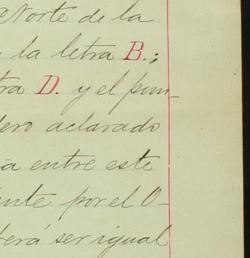 Norte de la
la letra B.;
tra D. y el pun-
dero aclarado
ia entre este
ente por el O-
rerá ser igual